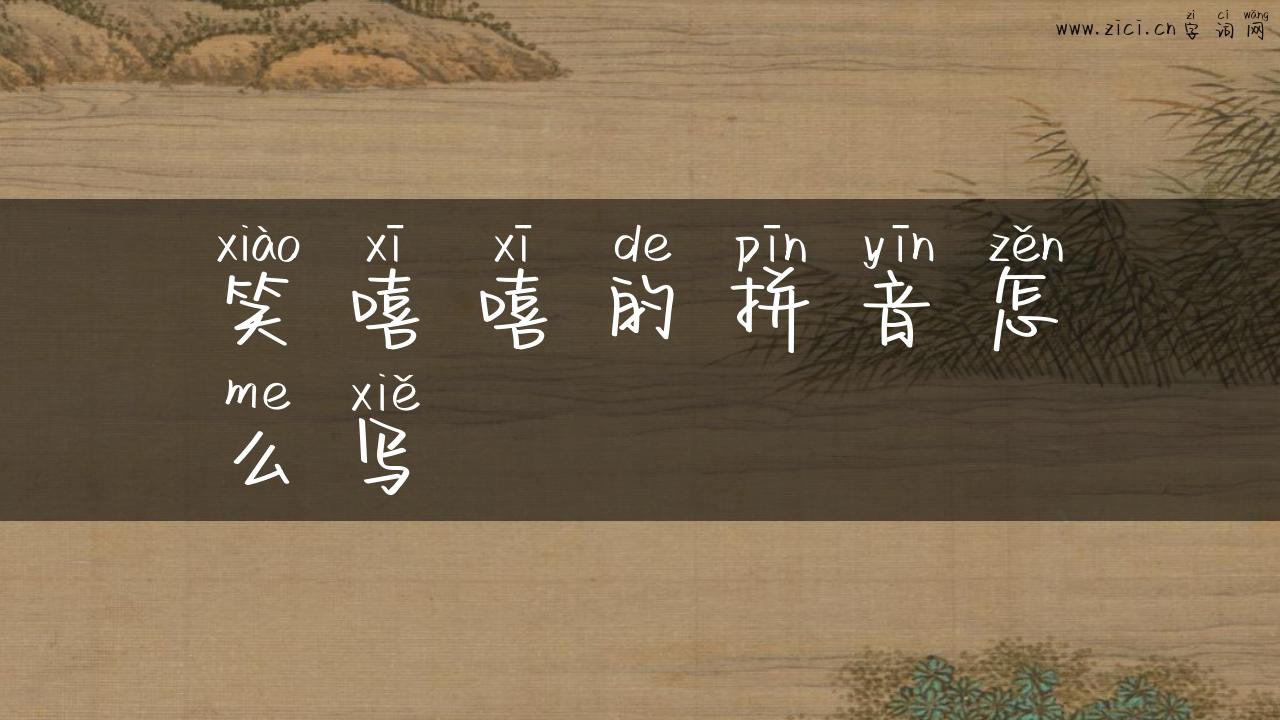 zì cí wǎng
www.zici.cn 字词网
xiào xī xī de pīn yīn zěn
笑嘻嘻的拼音怎
me xiě
么写